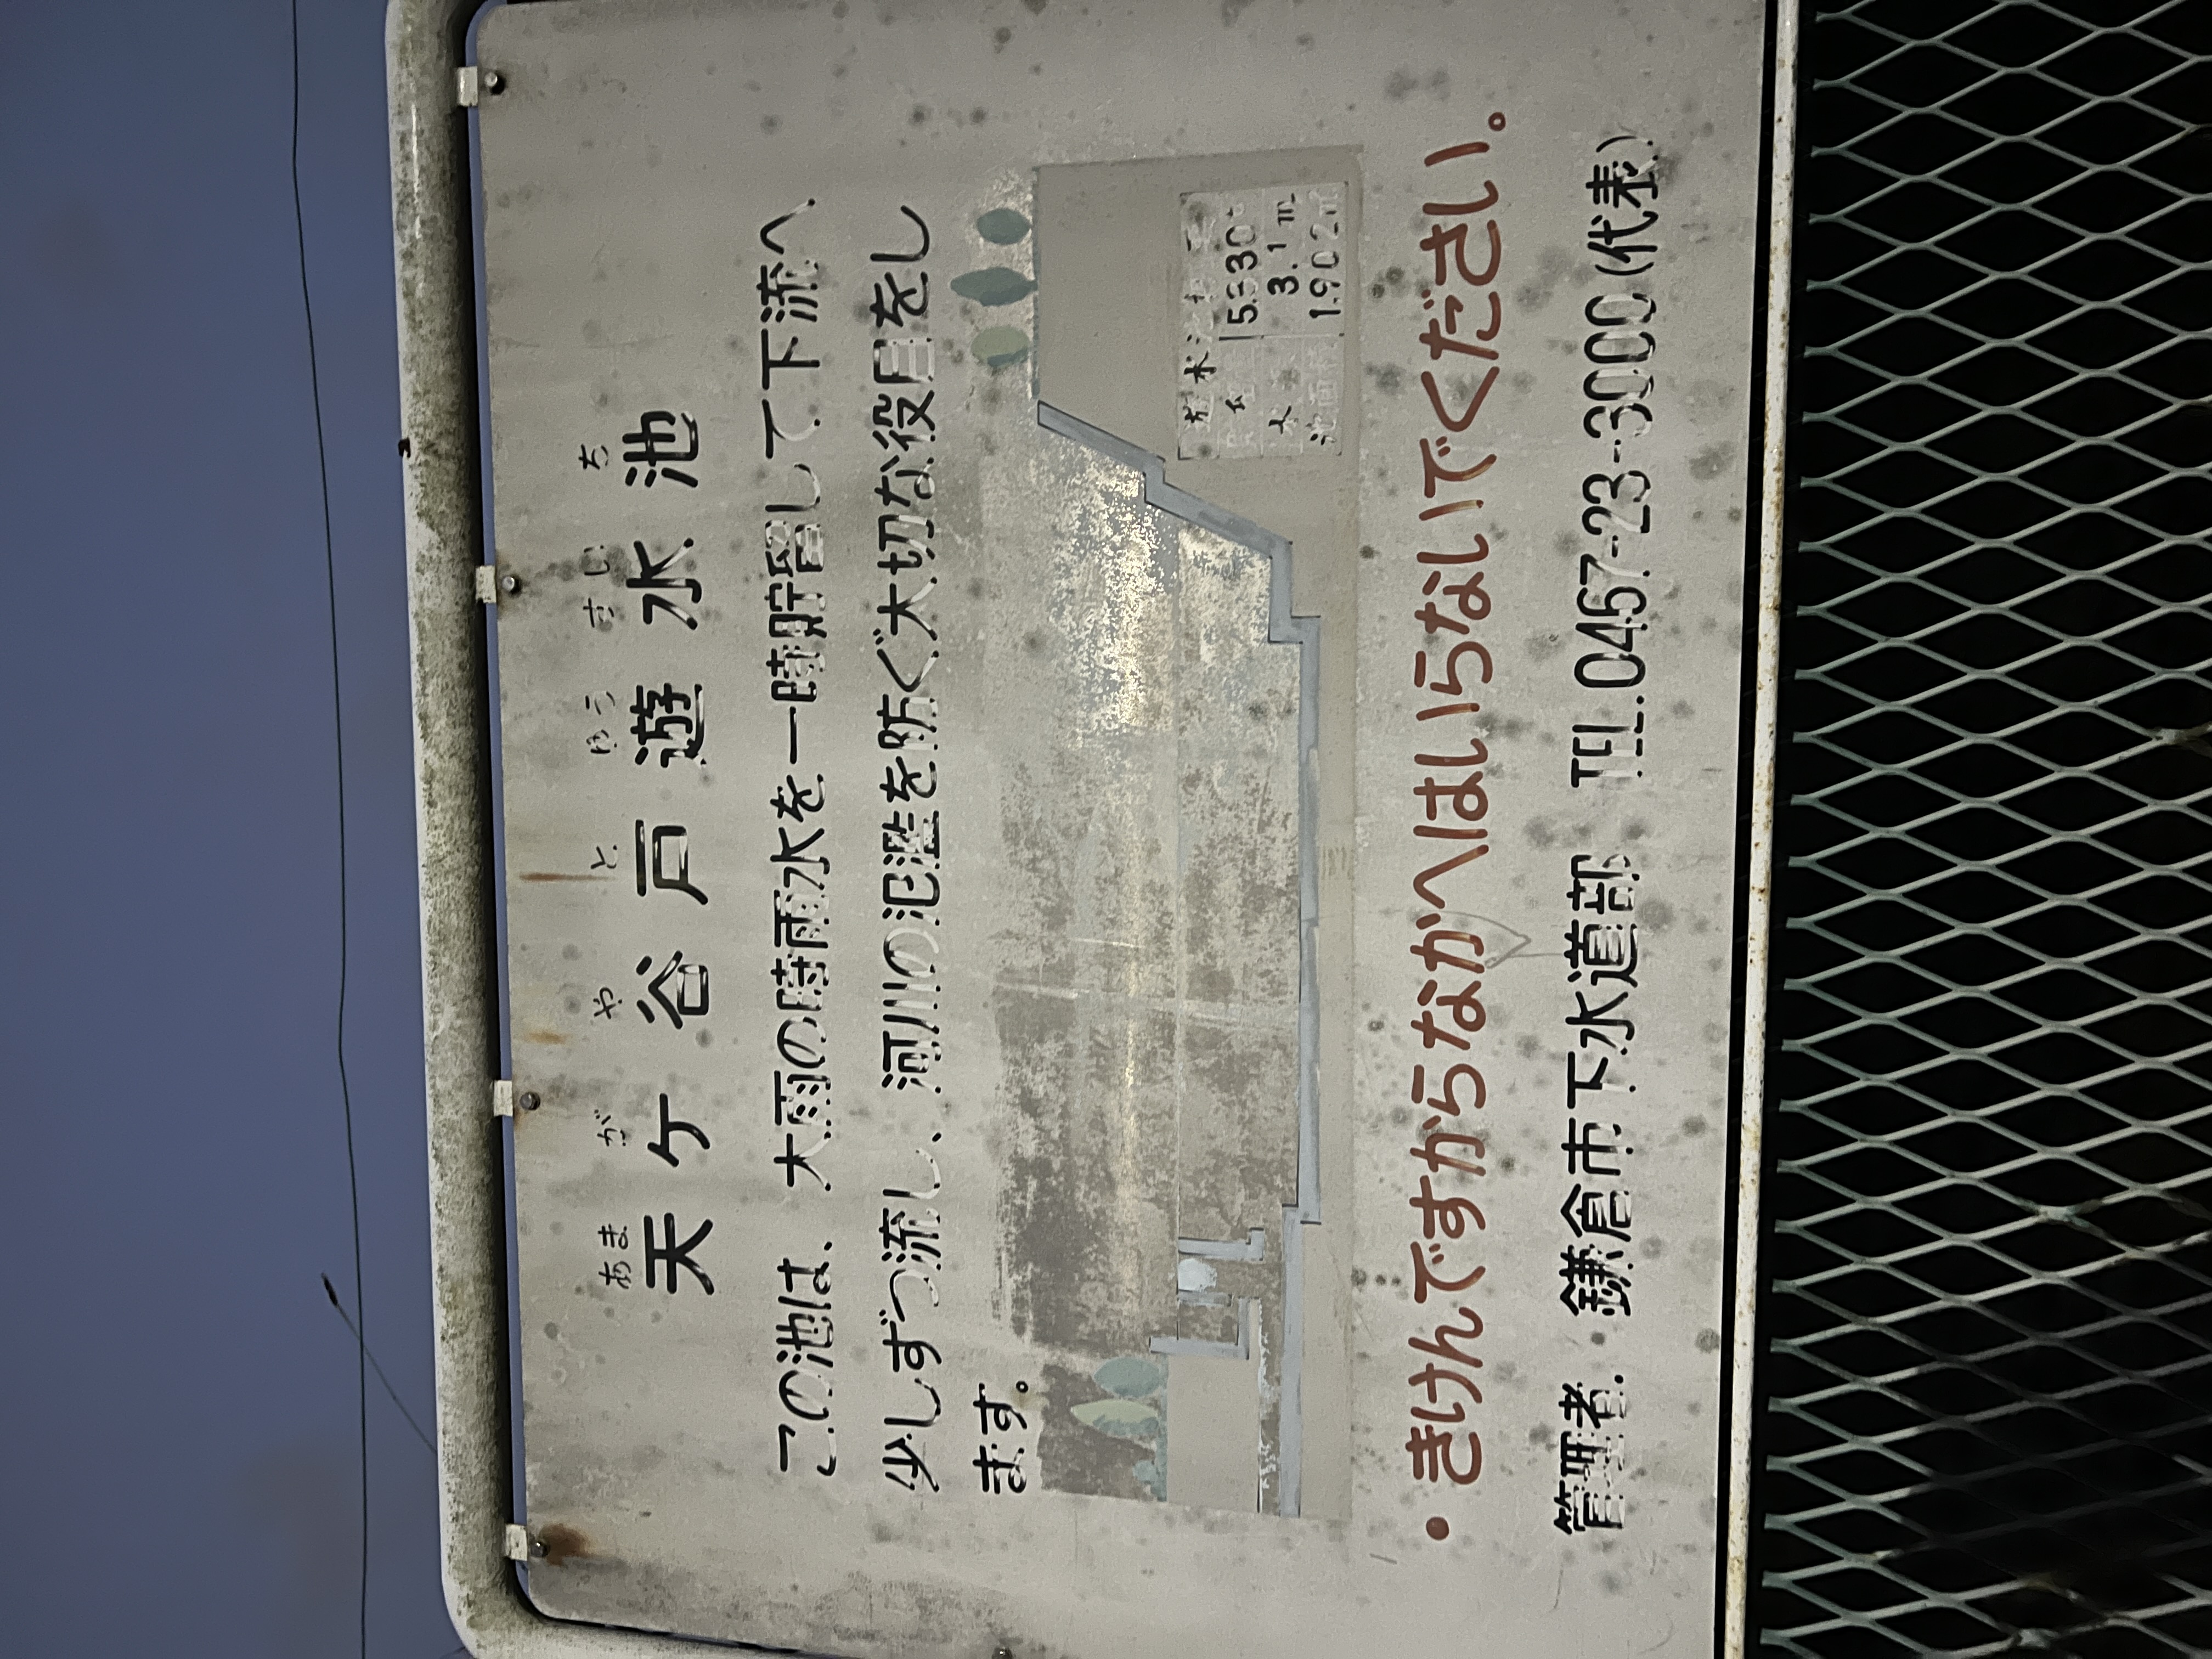 あまがやとゆうすいち
天ケ谷戸遊水池
この池は、大雨の時雨水を一時貯留して下流へ
少しずつ流し、河川の氾濫を防ぐ大切な役目をし
ます。
5.330t
3.1m
池面積 1.902㎡
・きけんですからなかへはいらないでください。
管理者.鎌倉市下水道部 TEL.0467-23-3000(代表)